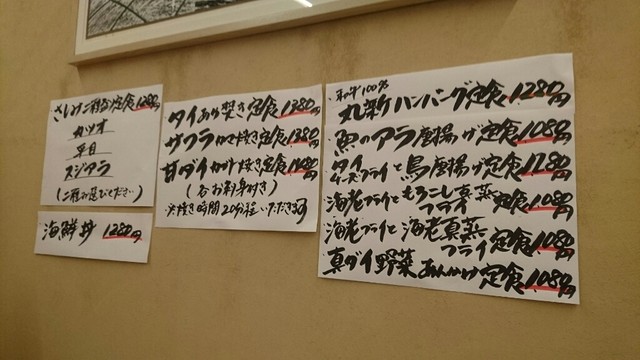 さしみ二種盛定食1280円
カツオ
平目
スジアラ
(二種お選びください)
海鮮丼 1280円
タイあら焚き定食1380円
サワラカマ焼き定食1380円
甘ダイカブト焼き定食
(各お刺身付き)
※焼き時間20分程いただきます
和牛100%
丸新ハンバーグ定食1280円
魚のアラ唐揚げ定食1080円
タイ
チーズフライと鳥唐揚げ定食1280円
海老フライともろこし真蒸
フライ定食1080円
海老フライと海老真蒸
フライ定食1080円
真ダイ野菜あんかけ定食1080円